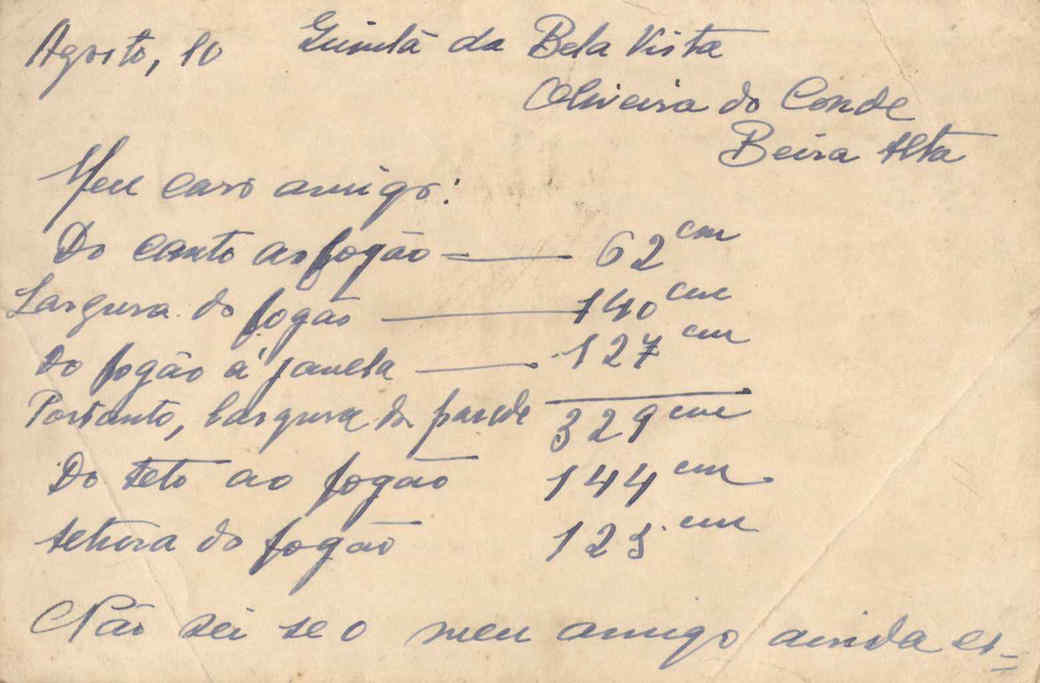 Agosto, 10 Quinta da Bela Vista
Oliveira do Conde
Beira Alta
Meu caro amigo:
Do canto ao fogão — 62 cm
Largura do fogão — 140 cm
Do fogão á janela — 127 cm
Portanto, largura da parede 329 cm
Do teto ao fogão 144 cm
Altura do fogão 125 cm
Não sei se o meu amigo ainda es=